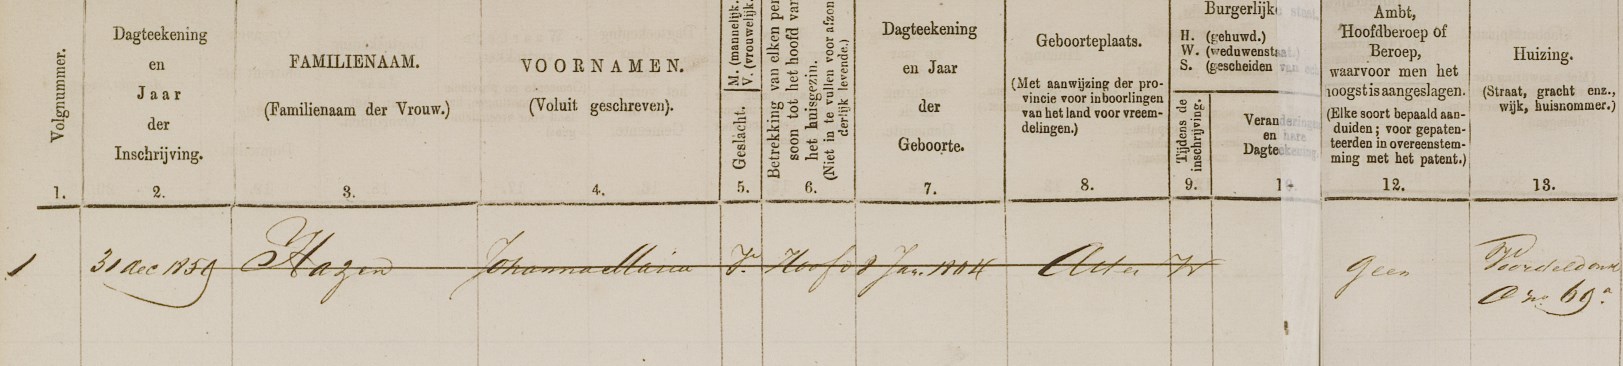 Volgnummer.
1.
Dagteekening
en
Jaar
der
Inschrijving.
2.
FAMILIENAAM.
(Familienaam der Vrouw.)
3.
VOORNAMEN.
(Voluit geschreven).
4.
M. (mannelijk.
V. (vrouwelijk.
Geslacht.
5.
Betrekking van elken per
soon tot het hoofd van
het huisgezin.
(Niet in te vullen voor afzon
derlijk levende.)
6.
Dagteekening
en Jaar
der
Geboorte.
7.
Geboorteplaats.
(Met aanwijzing der pro-
vincie voor inboorlingen
van het land voor vreem-
delingen.)
8.
Burgerlijke
H. (gehuwd.)
W. (weduwenstaat.)
S. (gescheiden
Tijdens de
inschrijving.
9.
Veranderingen
en
Dagteekening.
12.
Ambt,
Hoofdberoep of
Beroep,
waarvoor men het
hoogst is aangeslagen.
(Elke soort bepaald aan-
duiden; voor gepaten-
teerden in overeenstem-
ming met het patent.)
Huizing.
(Straat, gracht enz.,
wijk, huisnommer.)
13.
1 31 dec 1859 Hazen Johanna Maria V. Hoofd 8 Jan. 1804 Asten W Geen
69a